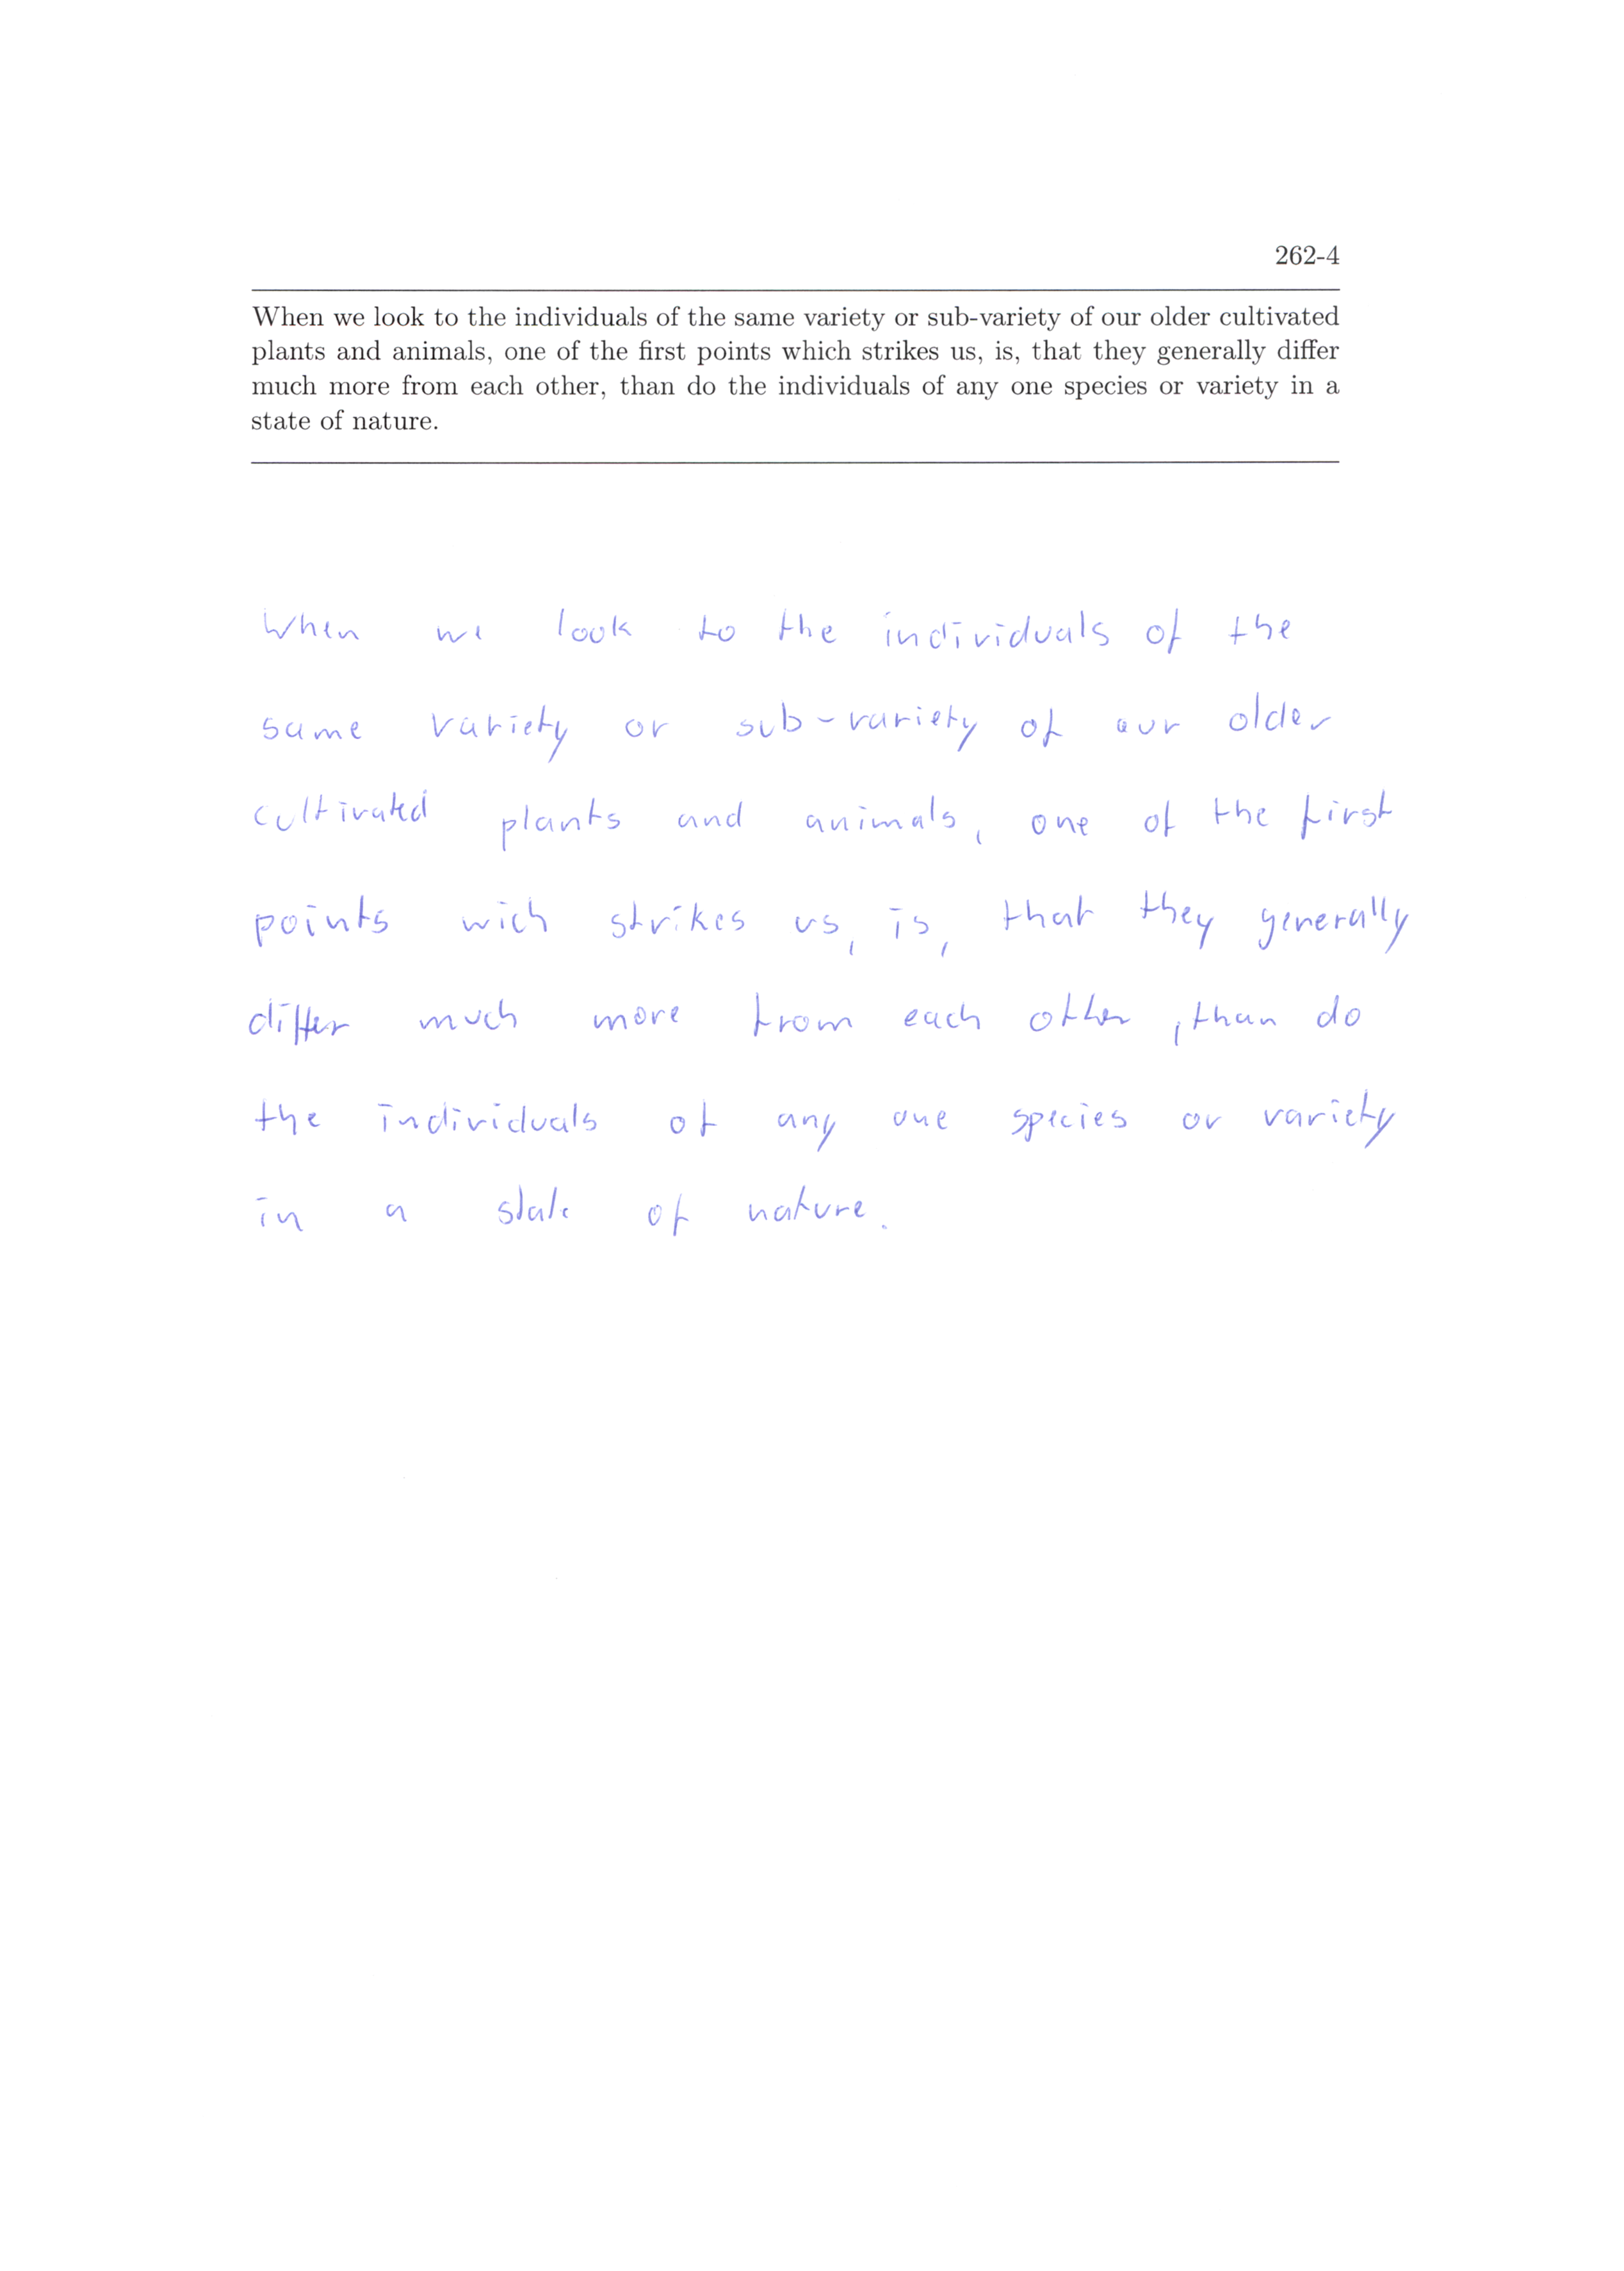 262-4
When we look to the individuals of the same variety or sub-variety of our older cultivated
plants and animals, one of the first points which strikes us, is, that they generally differ
much more from each other, than do the individuals of any one species or variety in a
state of nature.
When we look to the individuals of the
same variety or sub-variety of our older
cultivated plants and animals, one of the first
points wich strikes us, is, that they generally
differ much more from each other, than do
the individuals of any one species or variety
in a state of nature.